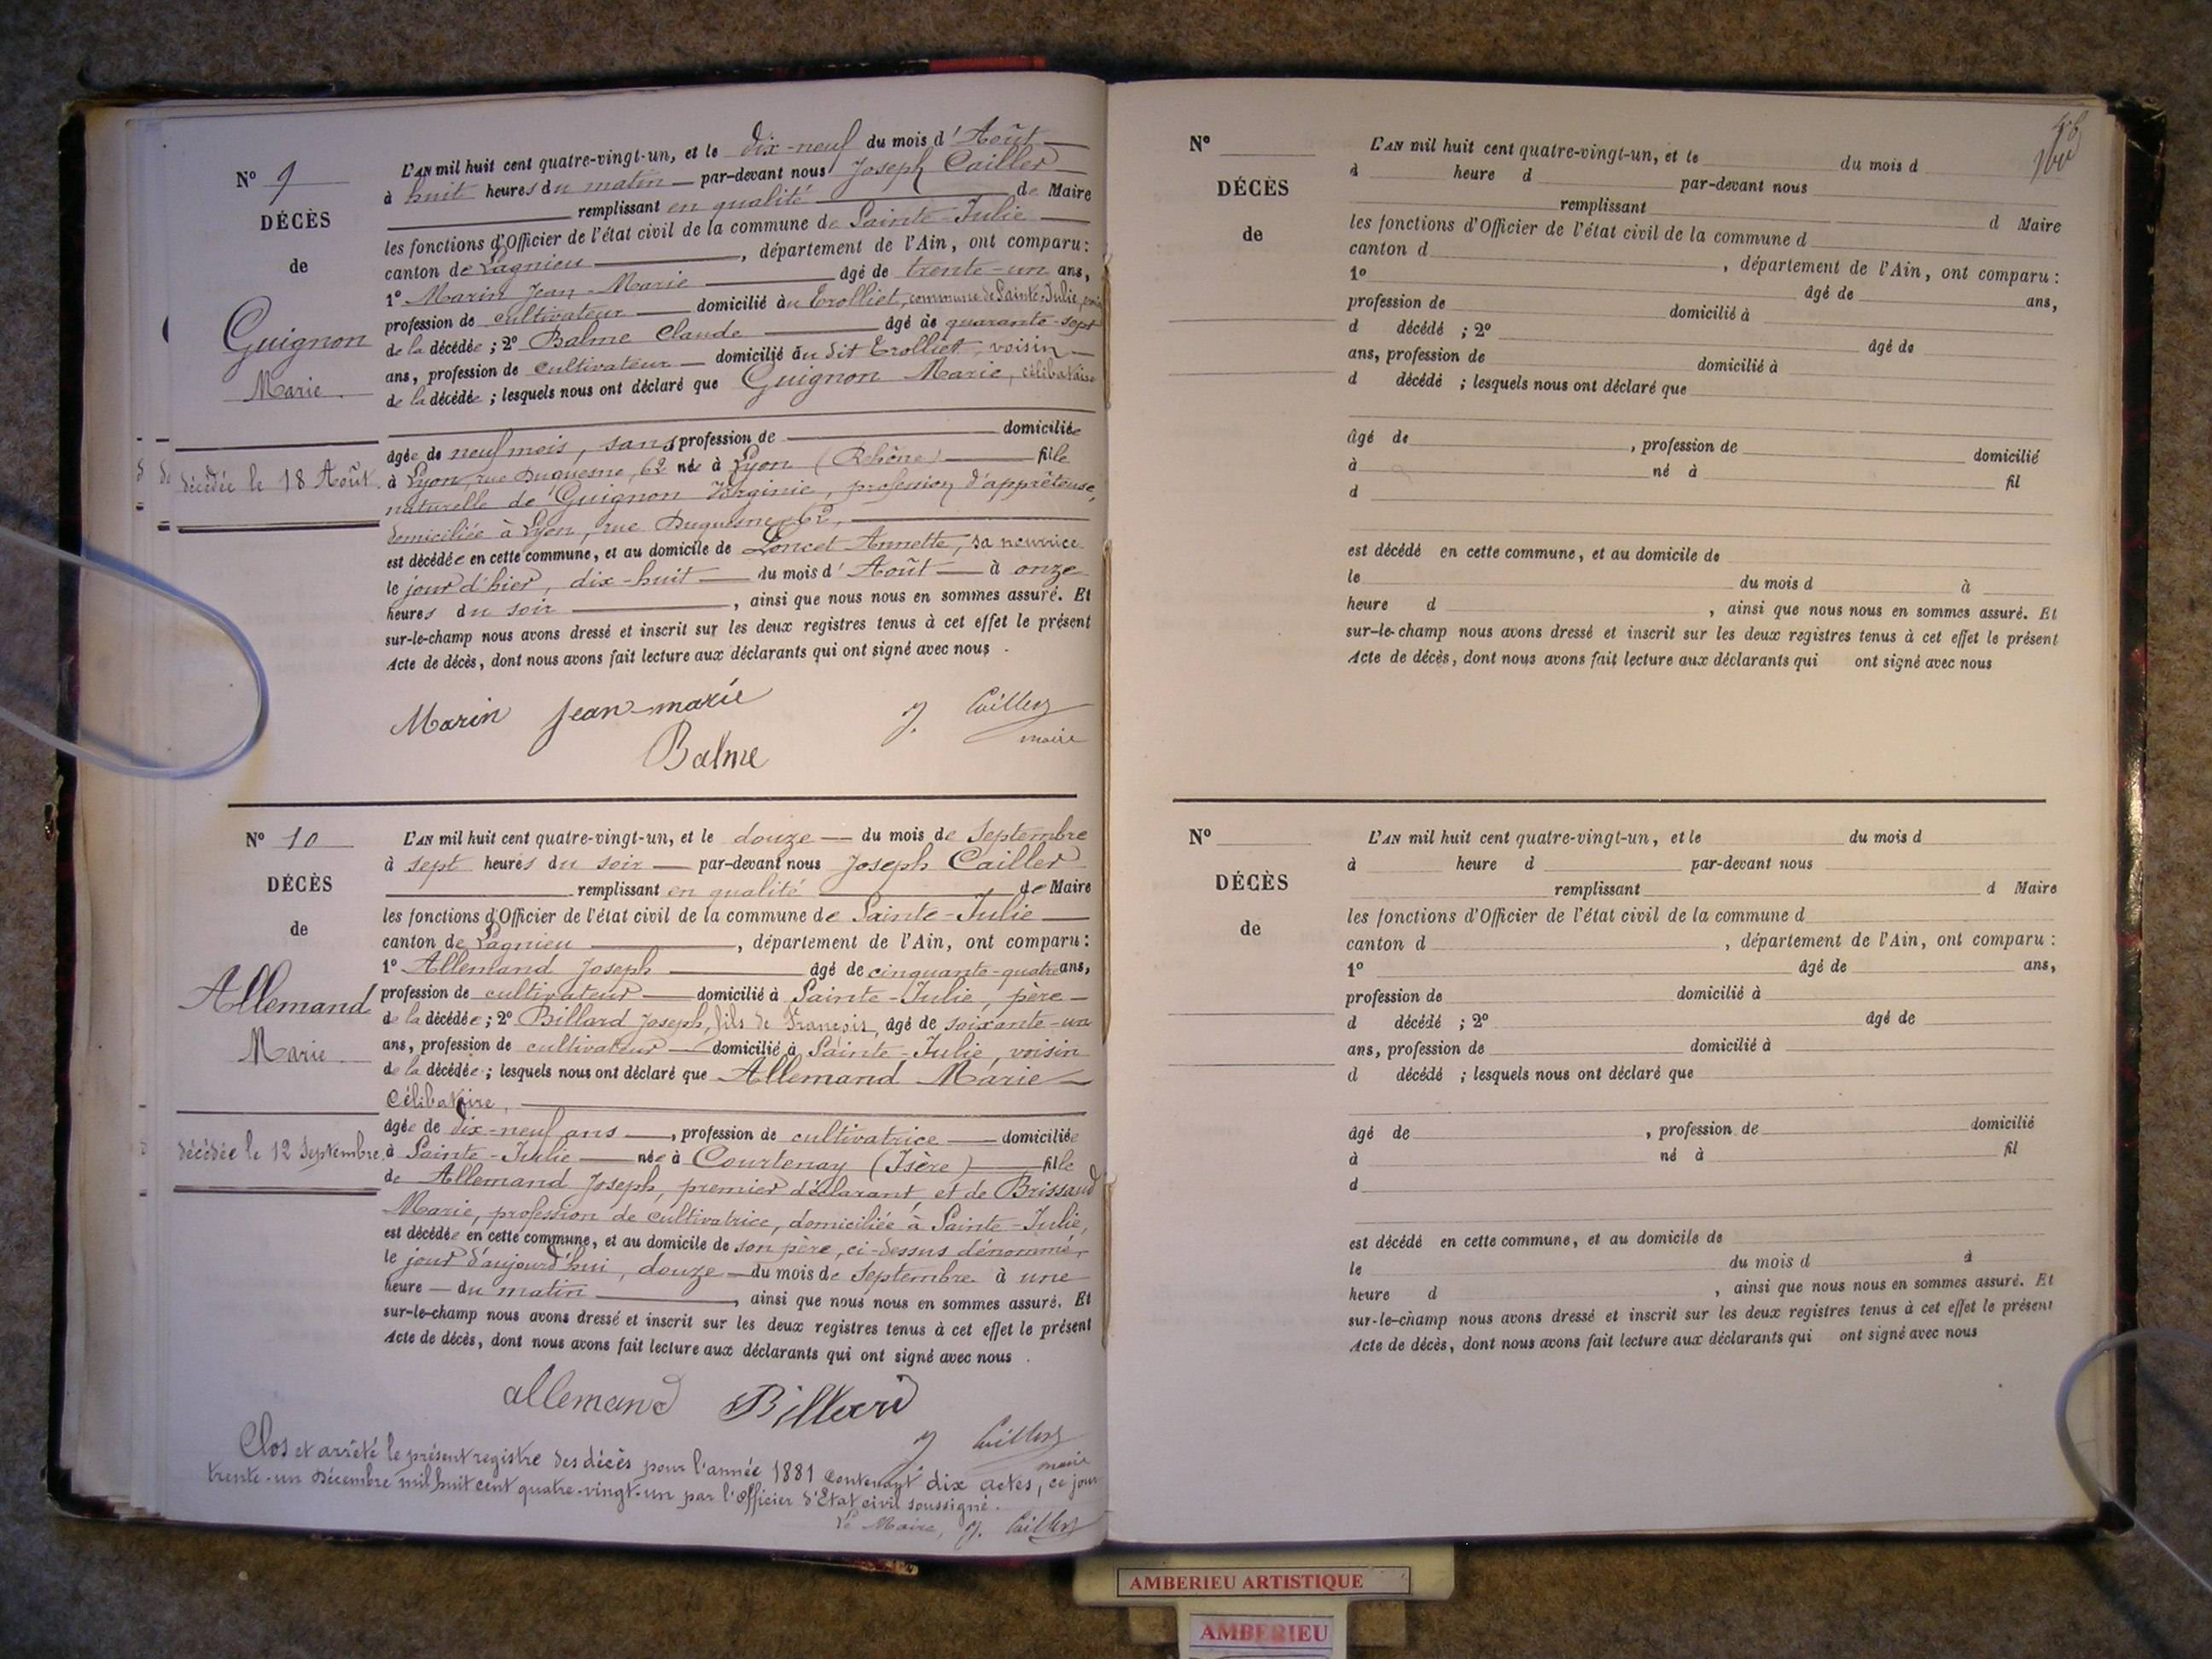 N° 9
DÉCÈS
de
Guignon
Marie.
décédée le 18 Août.
L'AN mil huit cent quatre-vingt-un, et le dix-neuf du mois d'Août
à huit heures du matin par-devant nous Joseph Cailler
remplissant en qualité de Maire
les fonctions d'Officier de l'état civil de la commune de Sainte-Julie
canton de Lagnieu, département de l'Ain, ont comparu :
1° Marin Jean-Marie âgé de trente-un ans,
profession de cultivateur domicilié au Trolliet, commune de Sainte-Julie, voisin
de la décédée ; 2° Balme Claude âgé de quarante-sept
ans, profession de cultivateur domicilié au dit Trolliet, voisin
de la décédée ; lesquels nous ont déclaré que Guignon Marie, célibataire
âgée de neuf mois, sans profession de domiciliée
à Lyon, rue Duguesne, 62 née à Lyon (Rhône) fille
naturelle de Guignon Virginie, profession d'apprêteuse,
domiciliée à Lyon, rue Duguesne, 62,
est décédée en cette commune, et au domicile de Loncet Annette, sa nourrice
le jour d'hier, dix-huit du mois d'Août à onze
heures du soir, ainsi que nous nous en sommes assuré. Et
sur-le-champ nous avons dressé et inscrit sur les deux registres tenus à cet effet le présent
Acte de décès, dont nous avons fait lecture aux déclarants qui ont signé avec nous.
Marin Jean-marie J. Cailler
maire
Balme
N° 10
DÉCÈS
de
Allemand
Marie.
décédée le 12 Septembre.
L'AN mil huit cent quatre-vingt-un, et le douze du mois de Septembre
à sept heures du soir par-devant nous Joseph Cailler
remplissant en qualité de Maire
les fonctions d'Officier de l'état civil de la commune de Sainte-Julie
canton de Lagnieu, département de l'Ain, ont comparu :
1° Allemand Joseph âgé de cinquante-quatre ans,
profession de cultivateur domicilié à Sainte-Julie, père
de la décédée ; 2° Billard Joseph, fils de François, âgé de soixante-un
ans, profession de cultivateur domicilié à Sainte-Julie, voisin
de la décédée ; lesquels nous ont déclaré que Allemand Marie
Célibataire,
âgée de dix-neuf ans, profession de cultivatrice domiciliée
à Sainte-Julie née à Courtenay (Isère) fille
de Allemand Joseph, premier déclarant, et de Brissaud
Marie, profession de cultivatrice, domiciliée à Sainte-Julie,
est décédée en cette commune, et au domicile de son père, ci-dessus dénommé,
le jour d'aujourd'hui, douze du mois de Septembre à une
heure du matin, ainsi que nous nous en sommes assuré. Et
sur-le-champ nous avons dressé et inscrit sur les deux registres tenus à cet effet le présent
Acte de décès, dont nous avons fait lecture aux déclarants qui ont signé avec nous.
allemand Billard
J. Cailler
maire
Clos et arrêté le présent registre des décès pour l'année 1881 contenant dix actes, ce jour
trente-un Décembre mil huit cent quatre-vingt-un par l'Officier d'Etat civil soussigné.
Le Maire, J. Cailler
N°
DÉCÈS
de
L'AN mil huit cent quatre-vingt-un, et le du mois d
à heure d par-devant nous
remplissant d Maire
les fonctions d'Officier de l'état civil de la commune d
canton d , département de l'Ain, ont comparu :
1° âgé de ans,
profession de domicilié à
d décédé ; 2° âgé de
ans, profession de domicilié à
d décédé ; lesquels nous ont déclaré que
âgé de , profession de domicilié
à né à fil
d
est décédé en cette commune, et au domicile de
le du mois d à
heure d , ainsi que nous nous en sommes assuré. Et
sur-le-champ nous avons dressé et inscrit sur les deux registres tenus à cet effet le présent
Acte de décès, dont nous avons fait lecture aux déclarants qui ont signé avec nous
N°
DÉCÈS
de
L'AN mil huit cent quatre-vingt-un, et le du mois d
à heure d par-devant nous
remplissant d Maire
les fonctions d'Officier de l'état civil de la commune d
canton d , département de l'Ain, ont comparu :
1° âgé de ans,
profession de domicilié à
d décédé ; 2° âgé de
ans, profession de domicilié à
d décédé ; lesquels nous ont déclaré que
âgé de , profession de domicilié
à né à fil
d
est décédé en cette commune, et au domicile de
le du mois d à
heure d , ainsi que nous nous en sommes assuré. Et
sur-le-champ nous avons dressé et inscrit sur les deux registres tenus à cet effet le présent
Acte de décès, dont nous avons fait lecture aux déclarants qui ont signé avec nous
AMBERIEU ARTISTIQUE
AMBERIEU